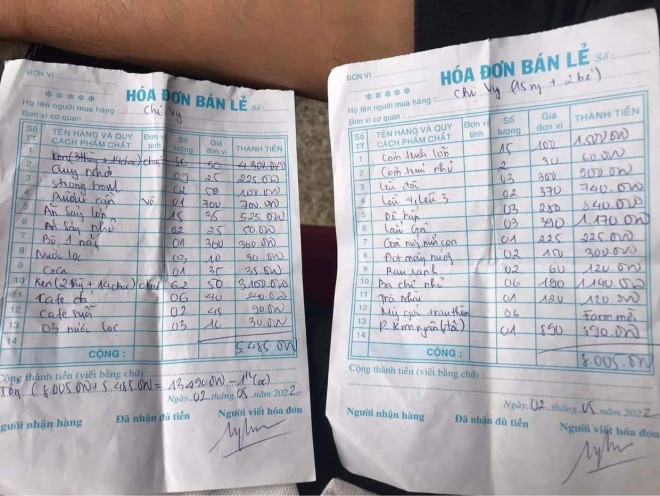 ĐƠN VỊ :
HÓA ĐƠN BÁN LẺ Số:
Họ tên người mua hàng : Chị Vy
Đơn vị cơ quan :
Số TT TÊN HÀNG VÀ QUY CÁCH PHẨM CHẤT Đơn vị tính Số lượng Giá đơn vị THÀNH TIỀN
1 Ken (3 thùng + 14 chai) chai 86 50 4.300.000
2 Quy nhỏ 09 25 225.000
3 Strong bowl 02 50 100.000
4 Rượu cần 01 700 700.000
5 Ăn sáng lớn 15 35 525.000
6 Ăn sáng nhỏ 02 25 50.000
7 Bò 1 nắng 01 360 360.000
8 Nước lọc 03 10 30.000
9 Coca 01 35 35.000
10 Ken (2 thùng + 14 chai) chai 62 50 3.100.000
11 Cafe đá 06 40 240.000
12 Cafe sữa 02 45 90.000
13 03 nước lọc 03 10 30.000
14
CỘNG : 5.485.000
Cộng thành tiền (viết bằng chữ) :
(8.005.000 + 5.485.000 = 13.490.000
Ngày 02 tháng 05 năm 2022
Người nhận hàng Đã nhận đủ tiền Người viết hóa đơn
ĐƠN VỊ :
HÓA ĐƠN BÁN LẺ Số :
Họ tên người mua hàng : Chị Vy (15 ng + 2 bé)
Đơn vị cơ quan
Số TT TÊN HÀNG VÀ QUY CÁCH PHẨM CHẤT Đơn vị tính Số lượng Giá đơn vị THÀNH TIỀN
1 Cơm trưa lớn 15 100
2 Cơm trưa nhỏ 2 30 60.000
3 Lều đôi 03 300 900.000
4 Lều 4, lều 3 02 370 740.000
5 03 280 840.000
6 Lẩu gà 03 390 1.170.000
7 01 225 225.000
8 02 150 300.000
9 Rau xanh 02 60 120.000
10 Ba chỉ nhỏ 06 190 1.140.000
11 01 120 120.000
12 06
13 01 590 590.000
14
CỘNG : 8.005.000
Cộng thành tiền (viết bằng chữ) :
Ngày 02 tháng 05 năm 2022
Người nhận hàng Đã nhận đủ tiền Người viết hóa đơn